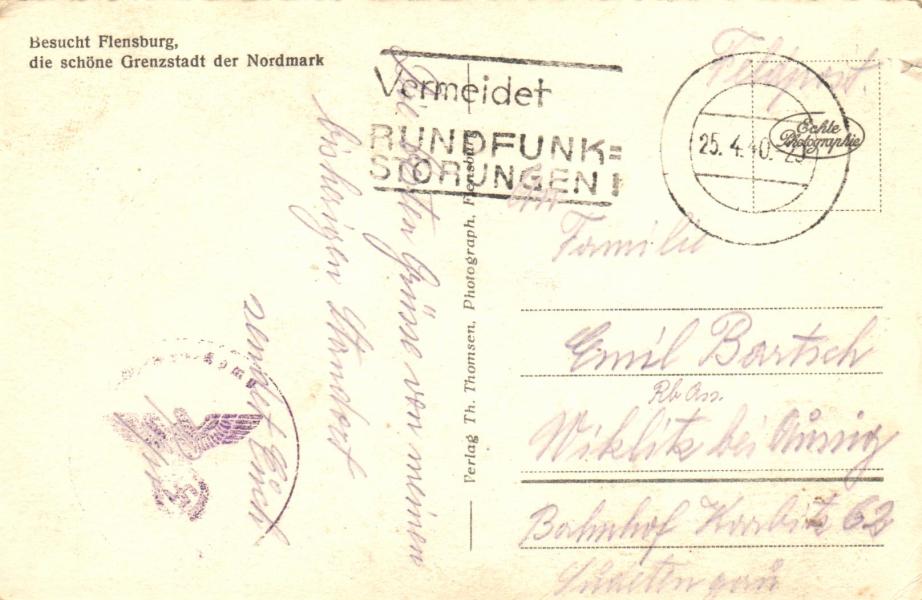 Besucht Flensburg,
die schöne Grenzstadt der Nordmark
Vermeidet
RUNDFUNK=
STÖRUNGEN!
25. 4. 40.
Echte
Photographie
Feldpost.
An
Familie
Emil Bartsch
Rb Ass.
Wiklitz bei Aussig
Bahnhof Karbitz 62
Sudetengau
Die besten Grüsse von meinen
bisherigen Standort
sendet Erich
Verlag Th. Thomsen, Photograph, Flensburg